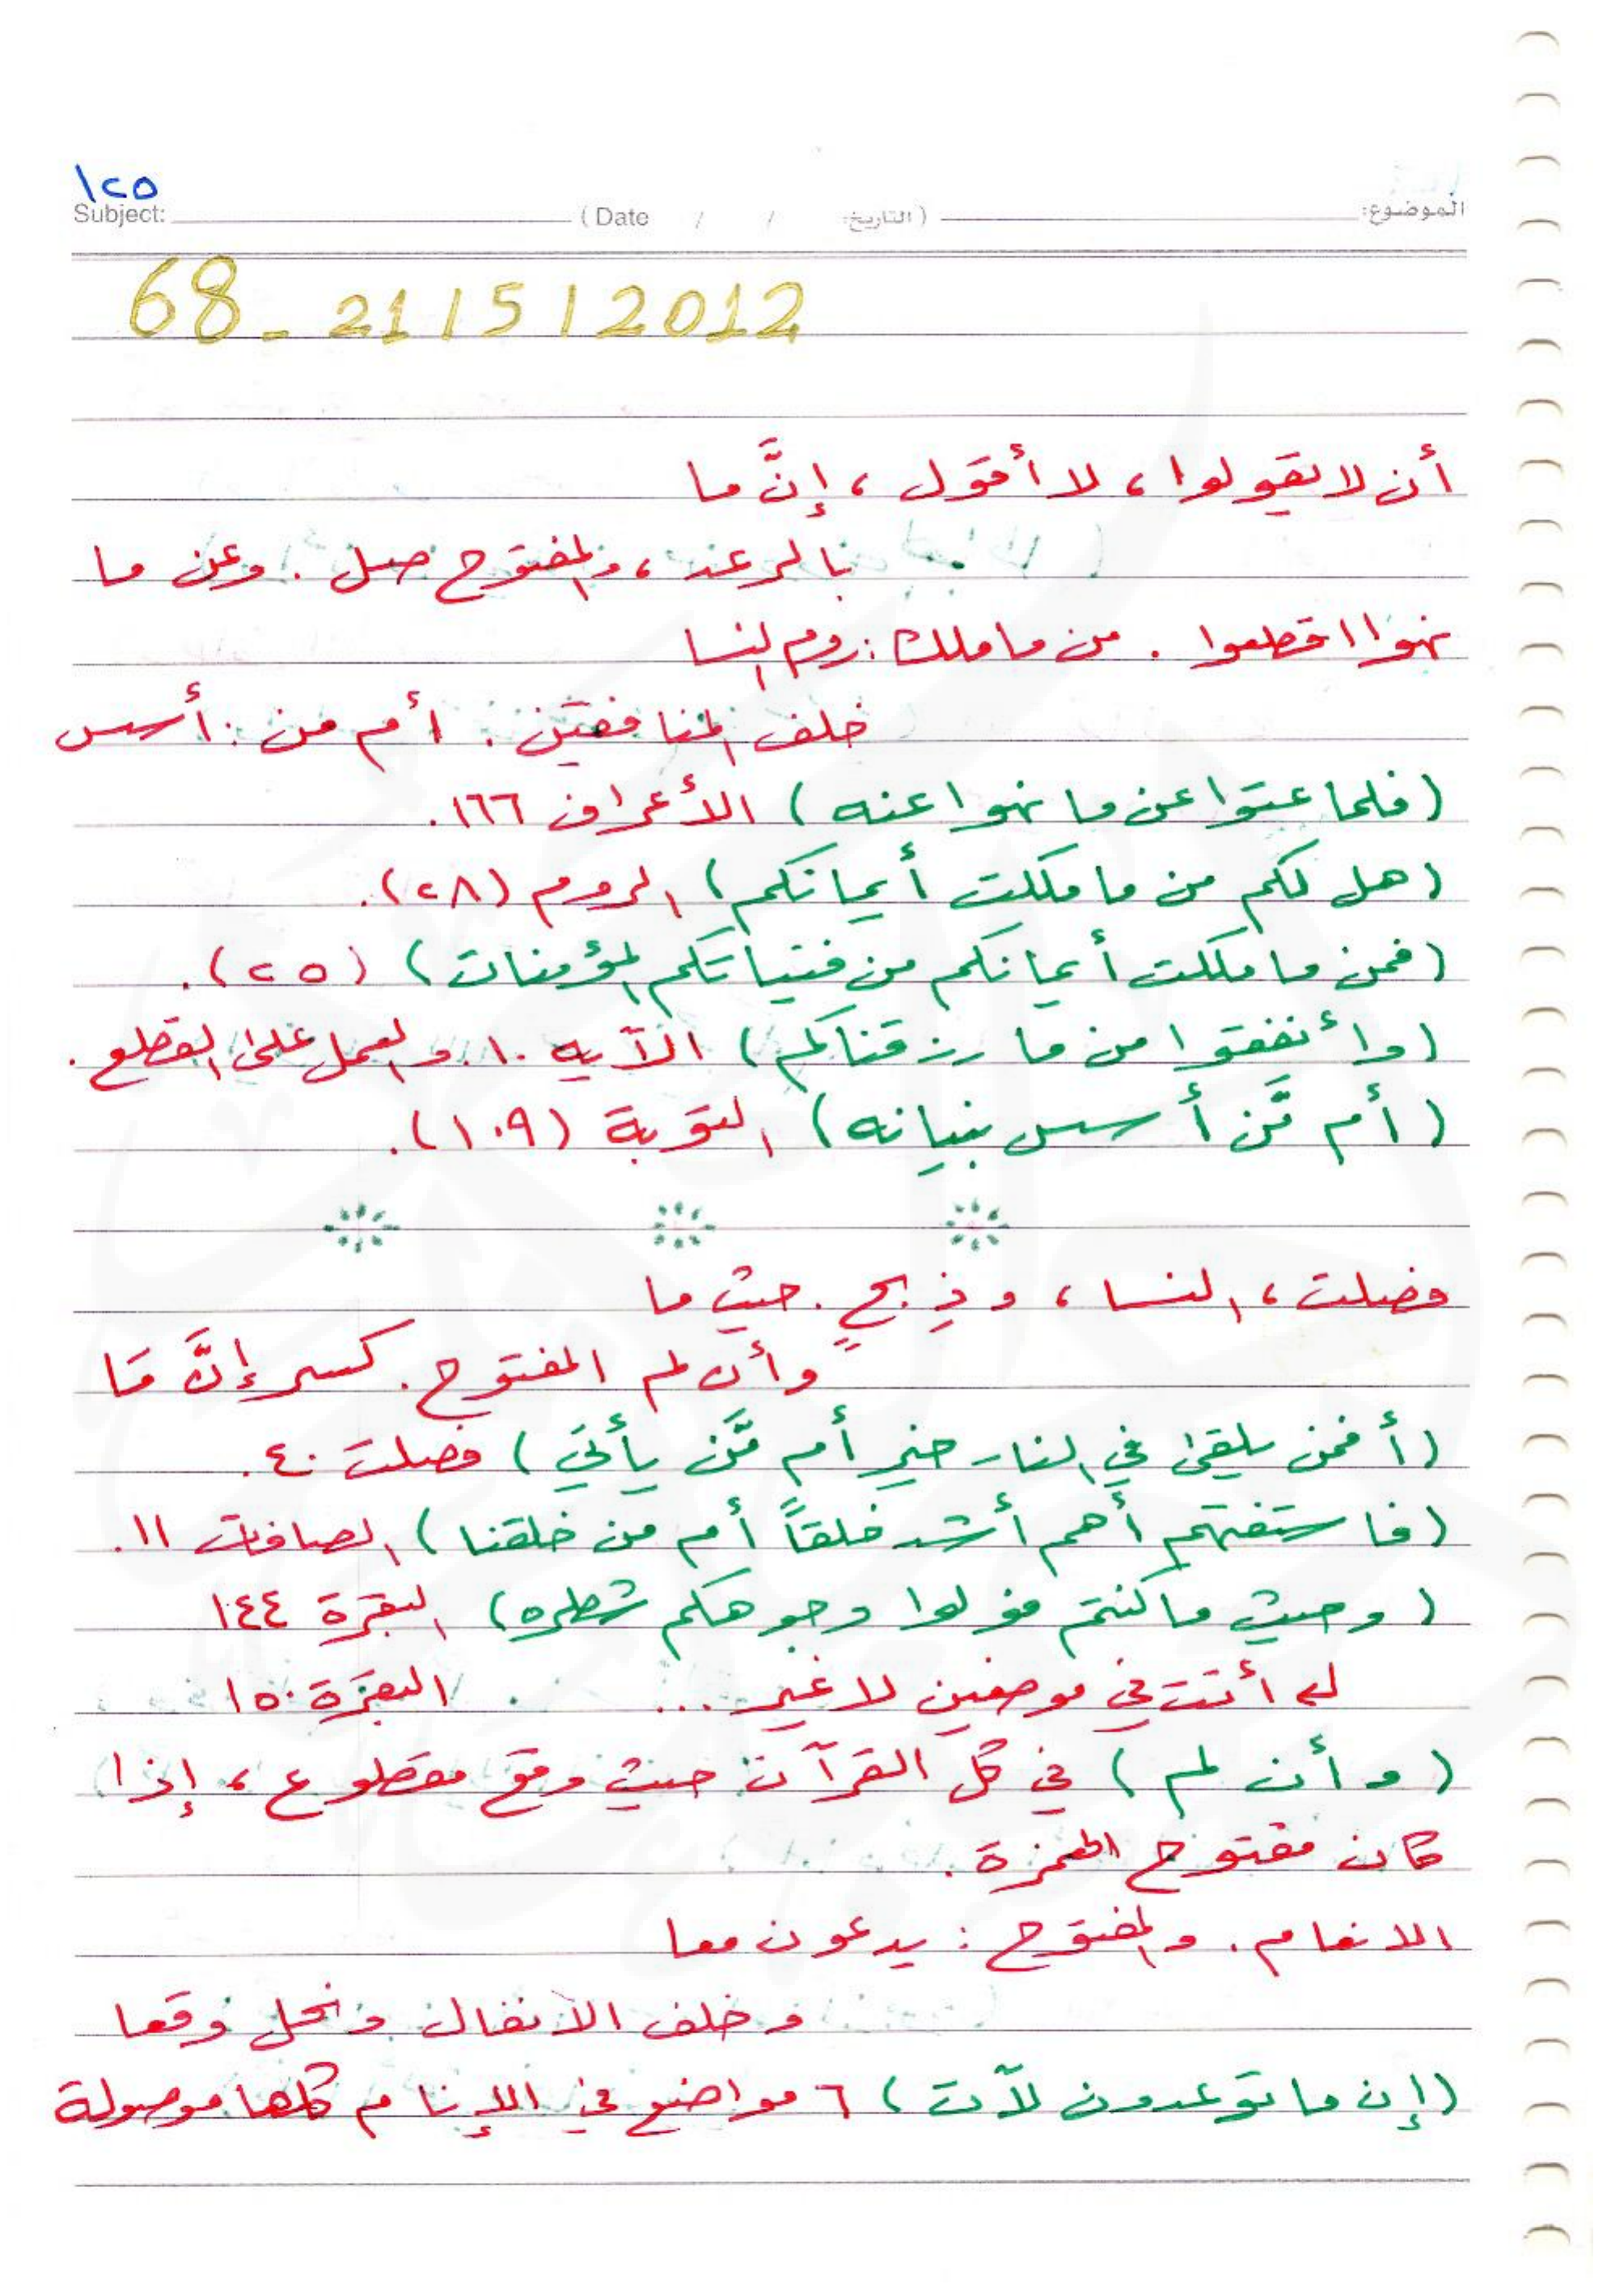 ١٢٥
Subject: (Date / / التاريخ) الموضوع:
68 - 21/5/2012
أن لا يقولوا، لا أقول، إنَّ ما
بالرعد، والمفتوح صل. وعن ما
نهوا اقطعوا. من ما ملك: روم النسا
خلف المنافقين. أم من: أسس
(فلما عتوا عن ما نهوا عنه) الأعراف ١٦٦.
(هل لكم من ما ملكت أيمانكم) الروم (٢٨).
(فمن ما ملكت أيمانكم من فتياتكم المؤمنات) (٢٥).
(وأنفقوا من ما رزقناكم) الآيه ١٠. والعمل على القطع.
(أم مَّن أسس بنيانه) التوبة (١٠٩).
فصلت، النسا، وذِبحٍ. حيث ما
وأن لم المفتوح. كسر إنَّ مَا
(أفمن يلقى في النار خير أم مَّن يأتي) فصلت ٤٠.
(فاستفتهم أهم أشد خلقاً أم من خلقنا) الصافات ١١.
(وحيث ما كنتم فولوا وجوهكم شطره) البقرة ١٤٤
أتت في موضعين لا غير ... البقرة ١٥٠
(وأن لم) في كل القرآن حيث وقع مقطوع، إذا
كان مفتوح الهمزة.
الانعام. والمفتوح: يدعون معا
وخلف الانفال ونحل وقعا
(إن ما توعدون لآت) ٦ مواضع في كلها موصولة